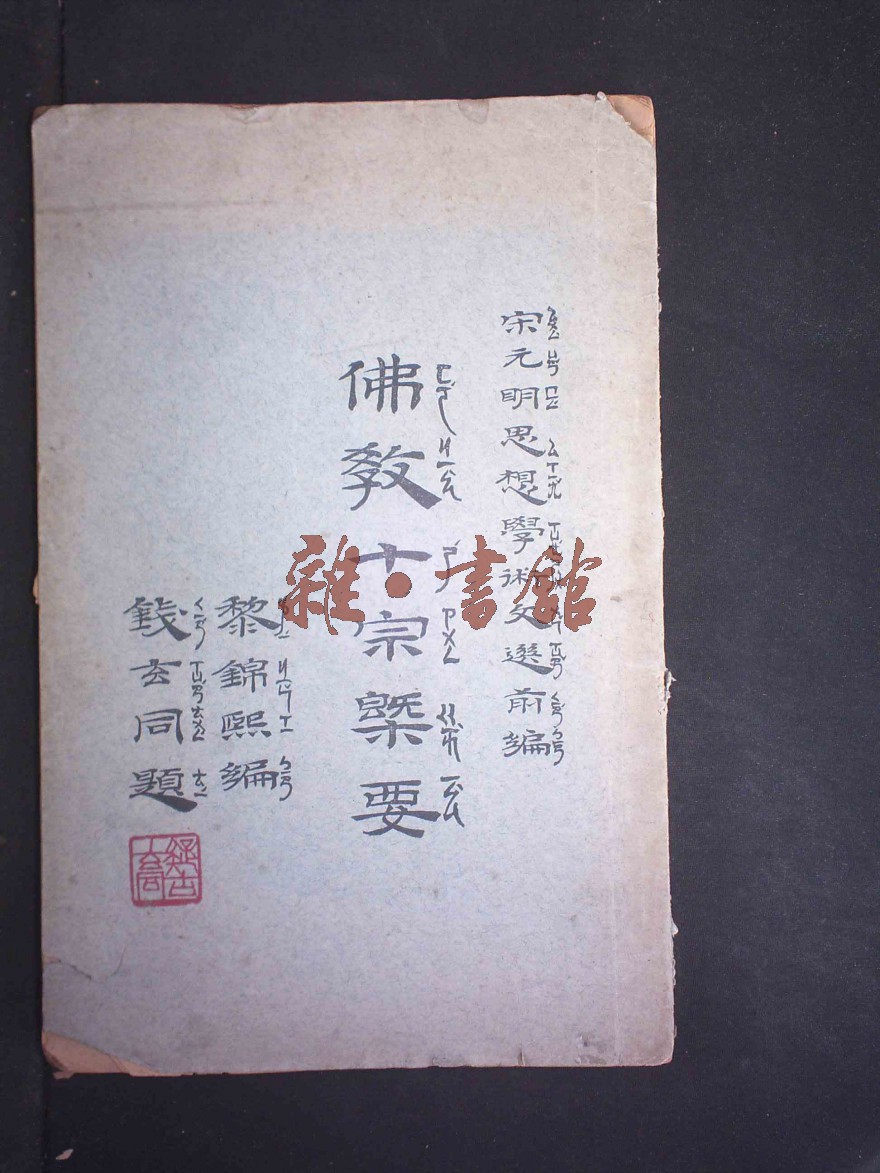 宋元明思想學術文選前編
佛敎十宗槩要
黎錦熙編
錢玄同題
雜·書館